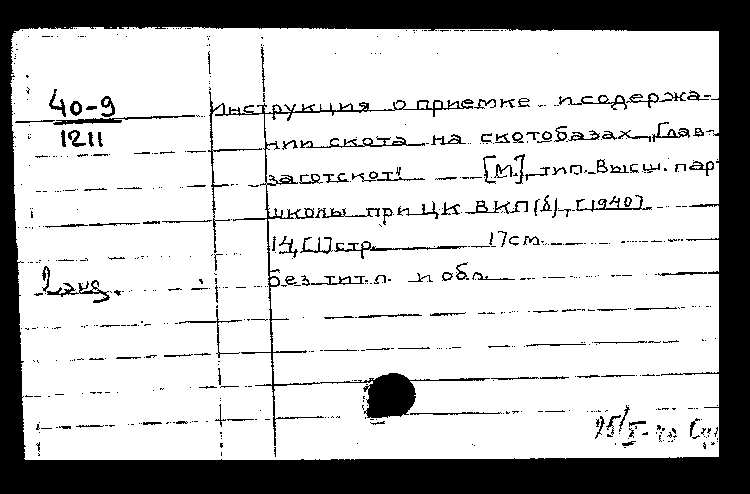 40-9
1211
Инструкция о приемке и содержа-
нии скота на скотобазах „Глав-
заготскот". [М.], тип. Высш. парт
школы при ЦК ВКП(б), [1940]
14, [1] стр. 17 см.
без тит. л. и обл.
2 экз.
25/X-40